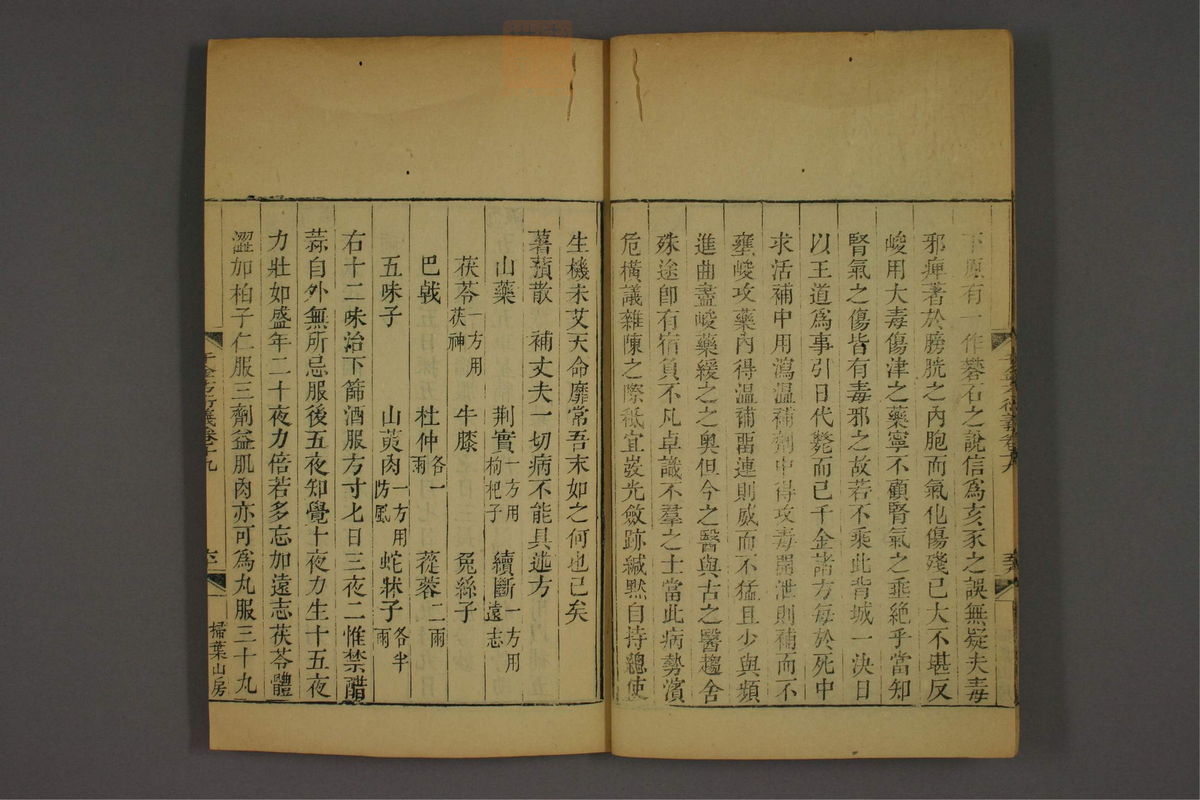 下原有一作蓉石之說信爲亥豕之誤無疑夫毒
邪痺著於膀胱之內胞而氣化傷殘已大不堪反
峻用大毒傷津之藥寧不顧腎氣之乖絶乎當知
腎氣之傷皆有毒邪之故若不乘此背城一決日
以王道爲事引日代斃而已千金諸方每於死中
求活補中用瀉溫補劑中得攻毒開泄則補而不
壅峻攻藥內得溫補畱連則威而不猛且少與頻
進曲盡峻藥緩之之奧但今之醫與古之醫趨舍
殊途卽有宿負不凡卓識不羣之士當此病勢濱
危橫議雜陳之際祇宜發光斂跡緘默自持總使
生機未艾天命靡常吾末如之何也已矣
薯蕷散 補丈夫一切病不能具述方
山藥 荆實一方用枸杞子 續斷一方用遠志
茯苓一方用茯神 牛膝 兔絲子
巴戟 杜仲各一兩 蓯蓉二兩
五味子 山萸肉一方用防風 蛇牀子各半兩
右十二味治下篩酒服方寸匕日三夜二惟禁醋
蒜自外無所忌服後五夜知覺十夜力生十五夜
力壯如盛年二十夜力倍若多忘加遠志茯苓體
澀加柏子仁服三劑益肌肉亦可爲丸服三十九
千金方衍義卷十九
掃葉山房